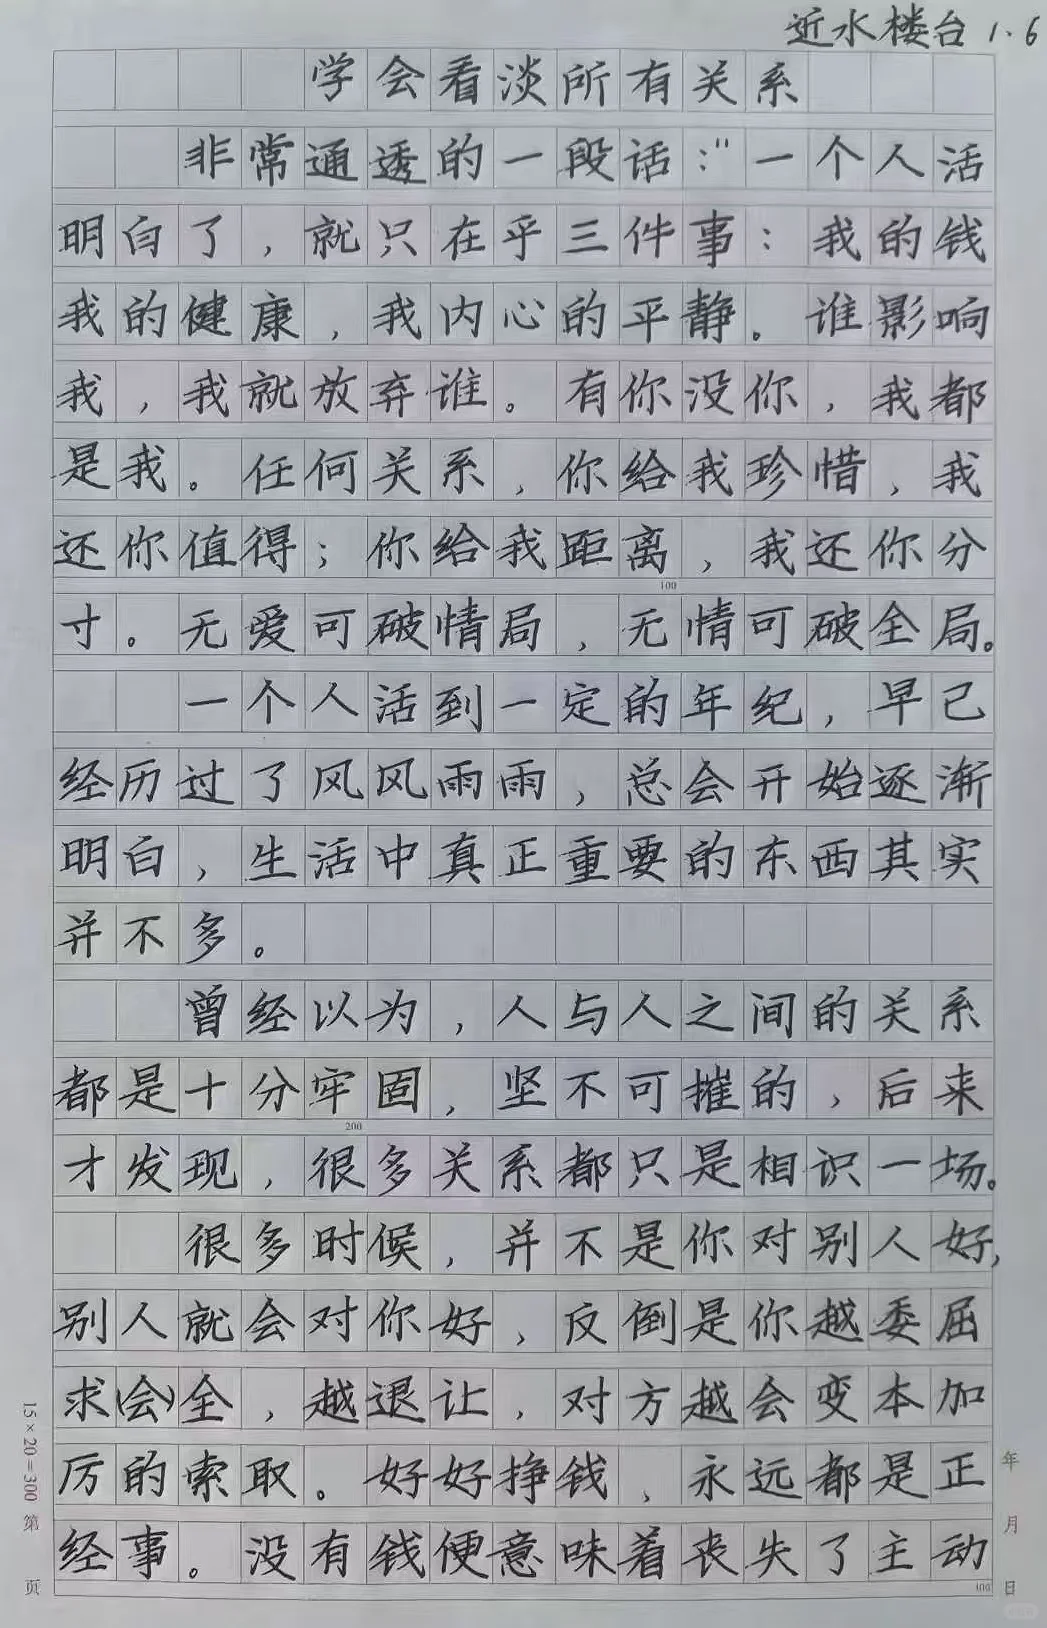 近水楼台 1.6
学会看淡所有关系
非常通透的一段话："一个人活
明白了，就只在乎三件事：我的钱
我的健康，我内心的平静。谁影响
我，我就放弃谁。有你没你，我都
是我。任何关系，你给我珍惜，我
还你值得；你给我距离，我还你分
100
寸。无爱可破情局，无情可破全局。
一个人活到一定的年纪，早已
经历过了风风雨雨，总会开始逐渐
明白，生活中真正重要的东西其实
并不多。
曾经以为，人与人之间的关系
都是十分牢固，坚不可摧的，后来
200
才发现，很多关系都只是相识一场。
很多时候，并不是你对别人好，
别人就会对你好，反倒是你越委屈
求(会)全，越退让，对方越会变本加
厉的索取。好好挣钱，永远都是正
经事。没有钱便意味着丧失了主动
15×20=300 第 页
年 月 日